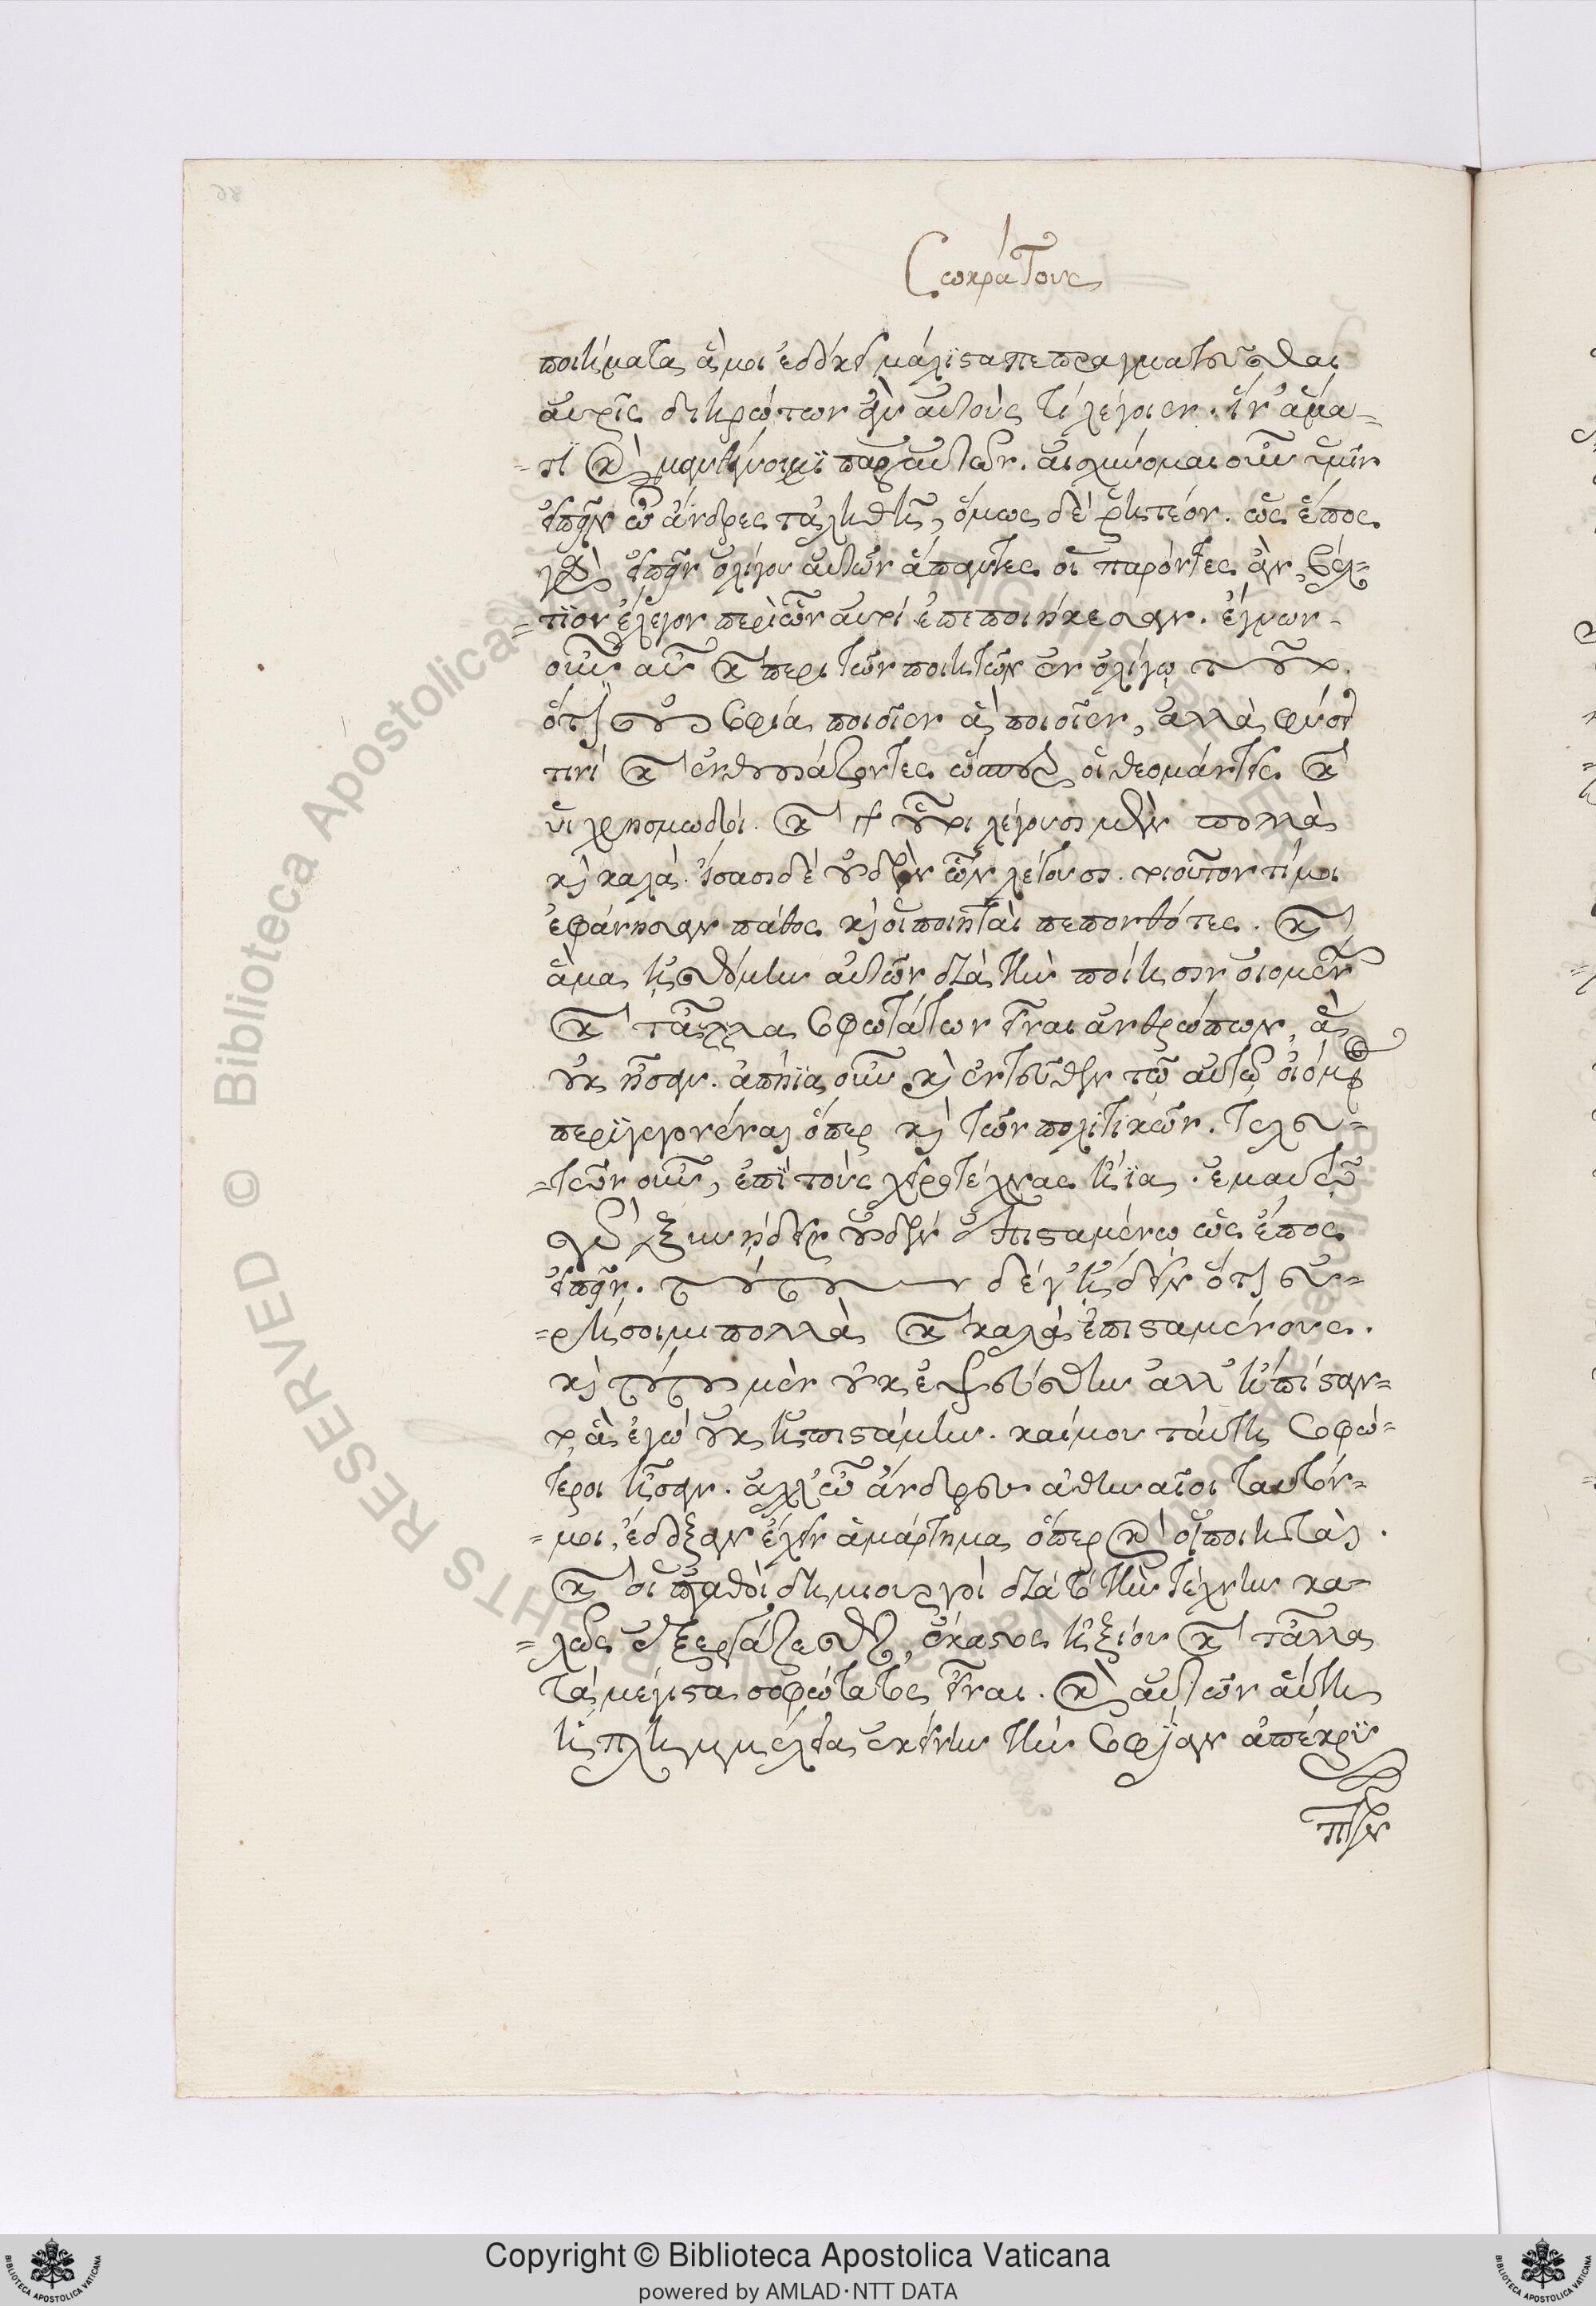 Σωκράτους
ποιήματα ἅ μοι ἐδόκει μάλιστα πεπραγματεῦσθαι
αὐτοῖς διηρώτων ἂν αὐτοὺς τί λέγοιεν. ἵν' ἅμα
τι καὶ μανθάνοιμι παρ' αὐτῶν. αἰσχύνομαι οὖν ὑμῖν
εἰπεῖν ὦ ἄνδρες τἀληθῆ, ὅμως δὲ ῥητέον. ὡς ἔπος
γὰρ εἰπεῖν ὀλίγου αὐτῶν ἅπαντες οἱ παρόντες ἂν βέλ=
=τιον ἔλεγον περὶ ὧν αὐτοὶ ἐπεποιήκεσαν. ἔγνων
οὖν αὖ καὶ περὶ τῶν ποιητῶν ἐν ὀλίγῳ τοῦτο.
ὅτι οὐ σοφίᾳ ποιοῖεν ἃ ποιοῖεν, ἀλλὰ φύσει
τινὶ καὶ ἐνθουσιάζοντες ὥσπερ οἱ θεομάντεις καὶ
οἱ χρησμωδοί. καὶ γὰρ οὗτοι λέγουσι μὲν πολλὰ
καὶ καλά. ἴσασι δὲ οὐδὲν ὧν λέγουσι. τοιοῦτον τί μοι
ἐφάνησαν πάθος καὶ οἱ ποιηταὶ πεπονθότες. καὶ
ἅμα ἠσθόμην αὐτῶν διὰ τὴν ποίησιν οἰομένων
καὶ τἄλλα σοφωτάτων εἶναι ἀνθρώπων, ἃ
οὐκ ἦσαν. ἀπῄια οὖν καὶ ἐντεῦθεν τῷ αὐτῷ οἰόμενος
περιγεγονέναι ὅπερ καὶ τῶν πολιτικῶν. τελευ=
=τῶν οὖν, ἐπὶ τοὺς χειροτέχνας ᾖα. ἐμαυτῷ
γὰρ ξυνῄδειν οὐδὲν ἐπισταμένῳ ὡς ἔπος
εἰπεῖν. τούτους δέ γ' ᾔδειν ὅτι εὑ=
=ρήσοιμι πολλὰ καὶ καλὰ ἐπισταμένους.
καὶ τούτου μὲν οὐκ ἐψεύσθην ἀλλ' ἠπίσταν=
το ἃ ἐγὼ οὐκ ἠπιστάμην. καί μου ταύτῃ σοφώ=
τεροι ἦσαν. ἀλλ' ὦ ἄνδρες ἀθηναῖοι ταυτόν
=μοι ἔδοξαν ἔχειν ἁμάρτημα ὅπερ καὶ οἱ ποιηταὶ.
καὶ οἱ ἀγαθοὶ δημιουργοὶ διὰ τὸ τὴν τέχνην κα=
=λῶς ἐξεργάζεσθαι, ἕκαστος ἠξίου καὶ τἄλλα
τὰ μέγιστα σοφώτατος εἶναι. καὶ αὐτῶν αὕτη
ἡ πλημμέλεια ἐκείνην τὴν σοφίαν ἀπέκρυ
πτεν
Copyright © Biblioteca Apostolica Vaticana
powered by AMLAD·NTT DATA